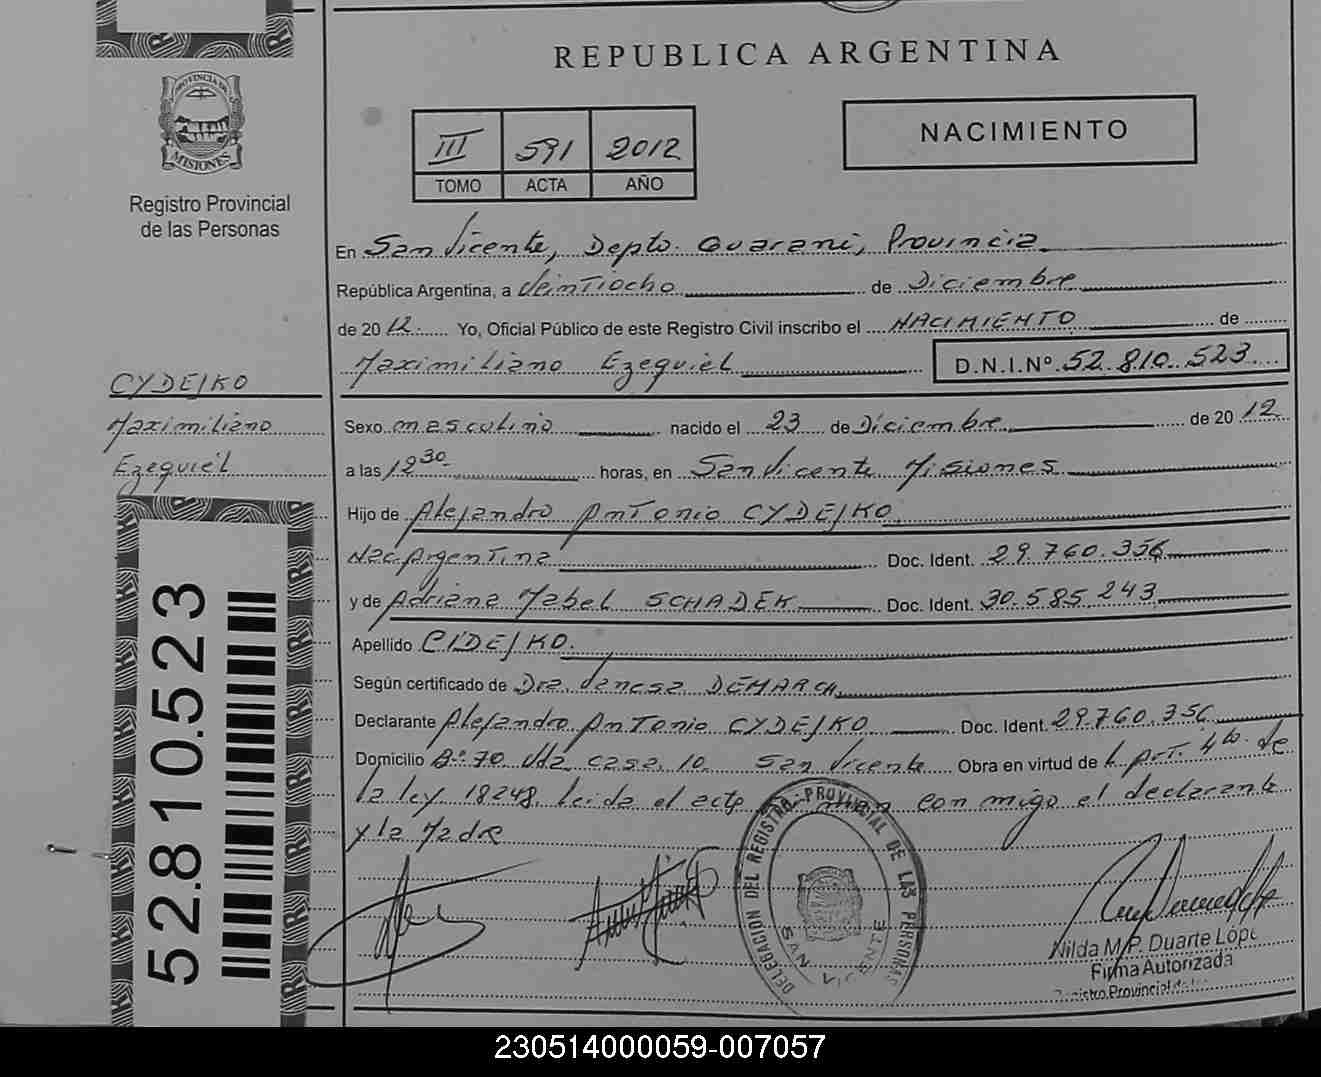 REPUBLICA ARGENTINA
PROVINCIA DE
MISIONES
Registro Provincial
de las Personas
III 591 2012
TOMO ACTA AÑO
NACIMIENTO
En San Vicente, Depto. Guaraní, Provincia
República Argentina, a Veintiocho de Diciembre
de 2012 Yo, Oficial Público de este Registro Civil inscribo el NACIMIENTO de
Maximiliano Ezequiel D.N.I.Nº 52.810.523
CYDEJKO
Maximiliano
Ezequiel
Sexo masculino nacido el 23 de Diciembre de 2012
a las 12 30 horas, en San Vicente Misiones
Hijo de Alejandro Antonio CYDEJKO
Nac. Argentina Doc. Ident. 29.760.356
y de Adriana Mabel SCHADEK Doc. Ident. 30.585.243
Apellido CIDEJKO
Según certificado de Dra. Vanesa DEMARCH
Declarante Alejandro Antonio CYDEJKO Doc. Ident. 29.760.356
Domicilio Bº 70 Vdz casa 10 San Vicente Obra en virtud de L prt. 4to. de
la ley 18248. Leida el acta conmigo el declarante
y la Madre
52.810.523
DELEGACION DEL REGISTRO PROVINCIAL DE LAS PERSONAS
SAN VICENTE
Nilda M.P. Duarte López
Firma Autorizada
Registro Provincial de
230514000059-007057